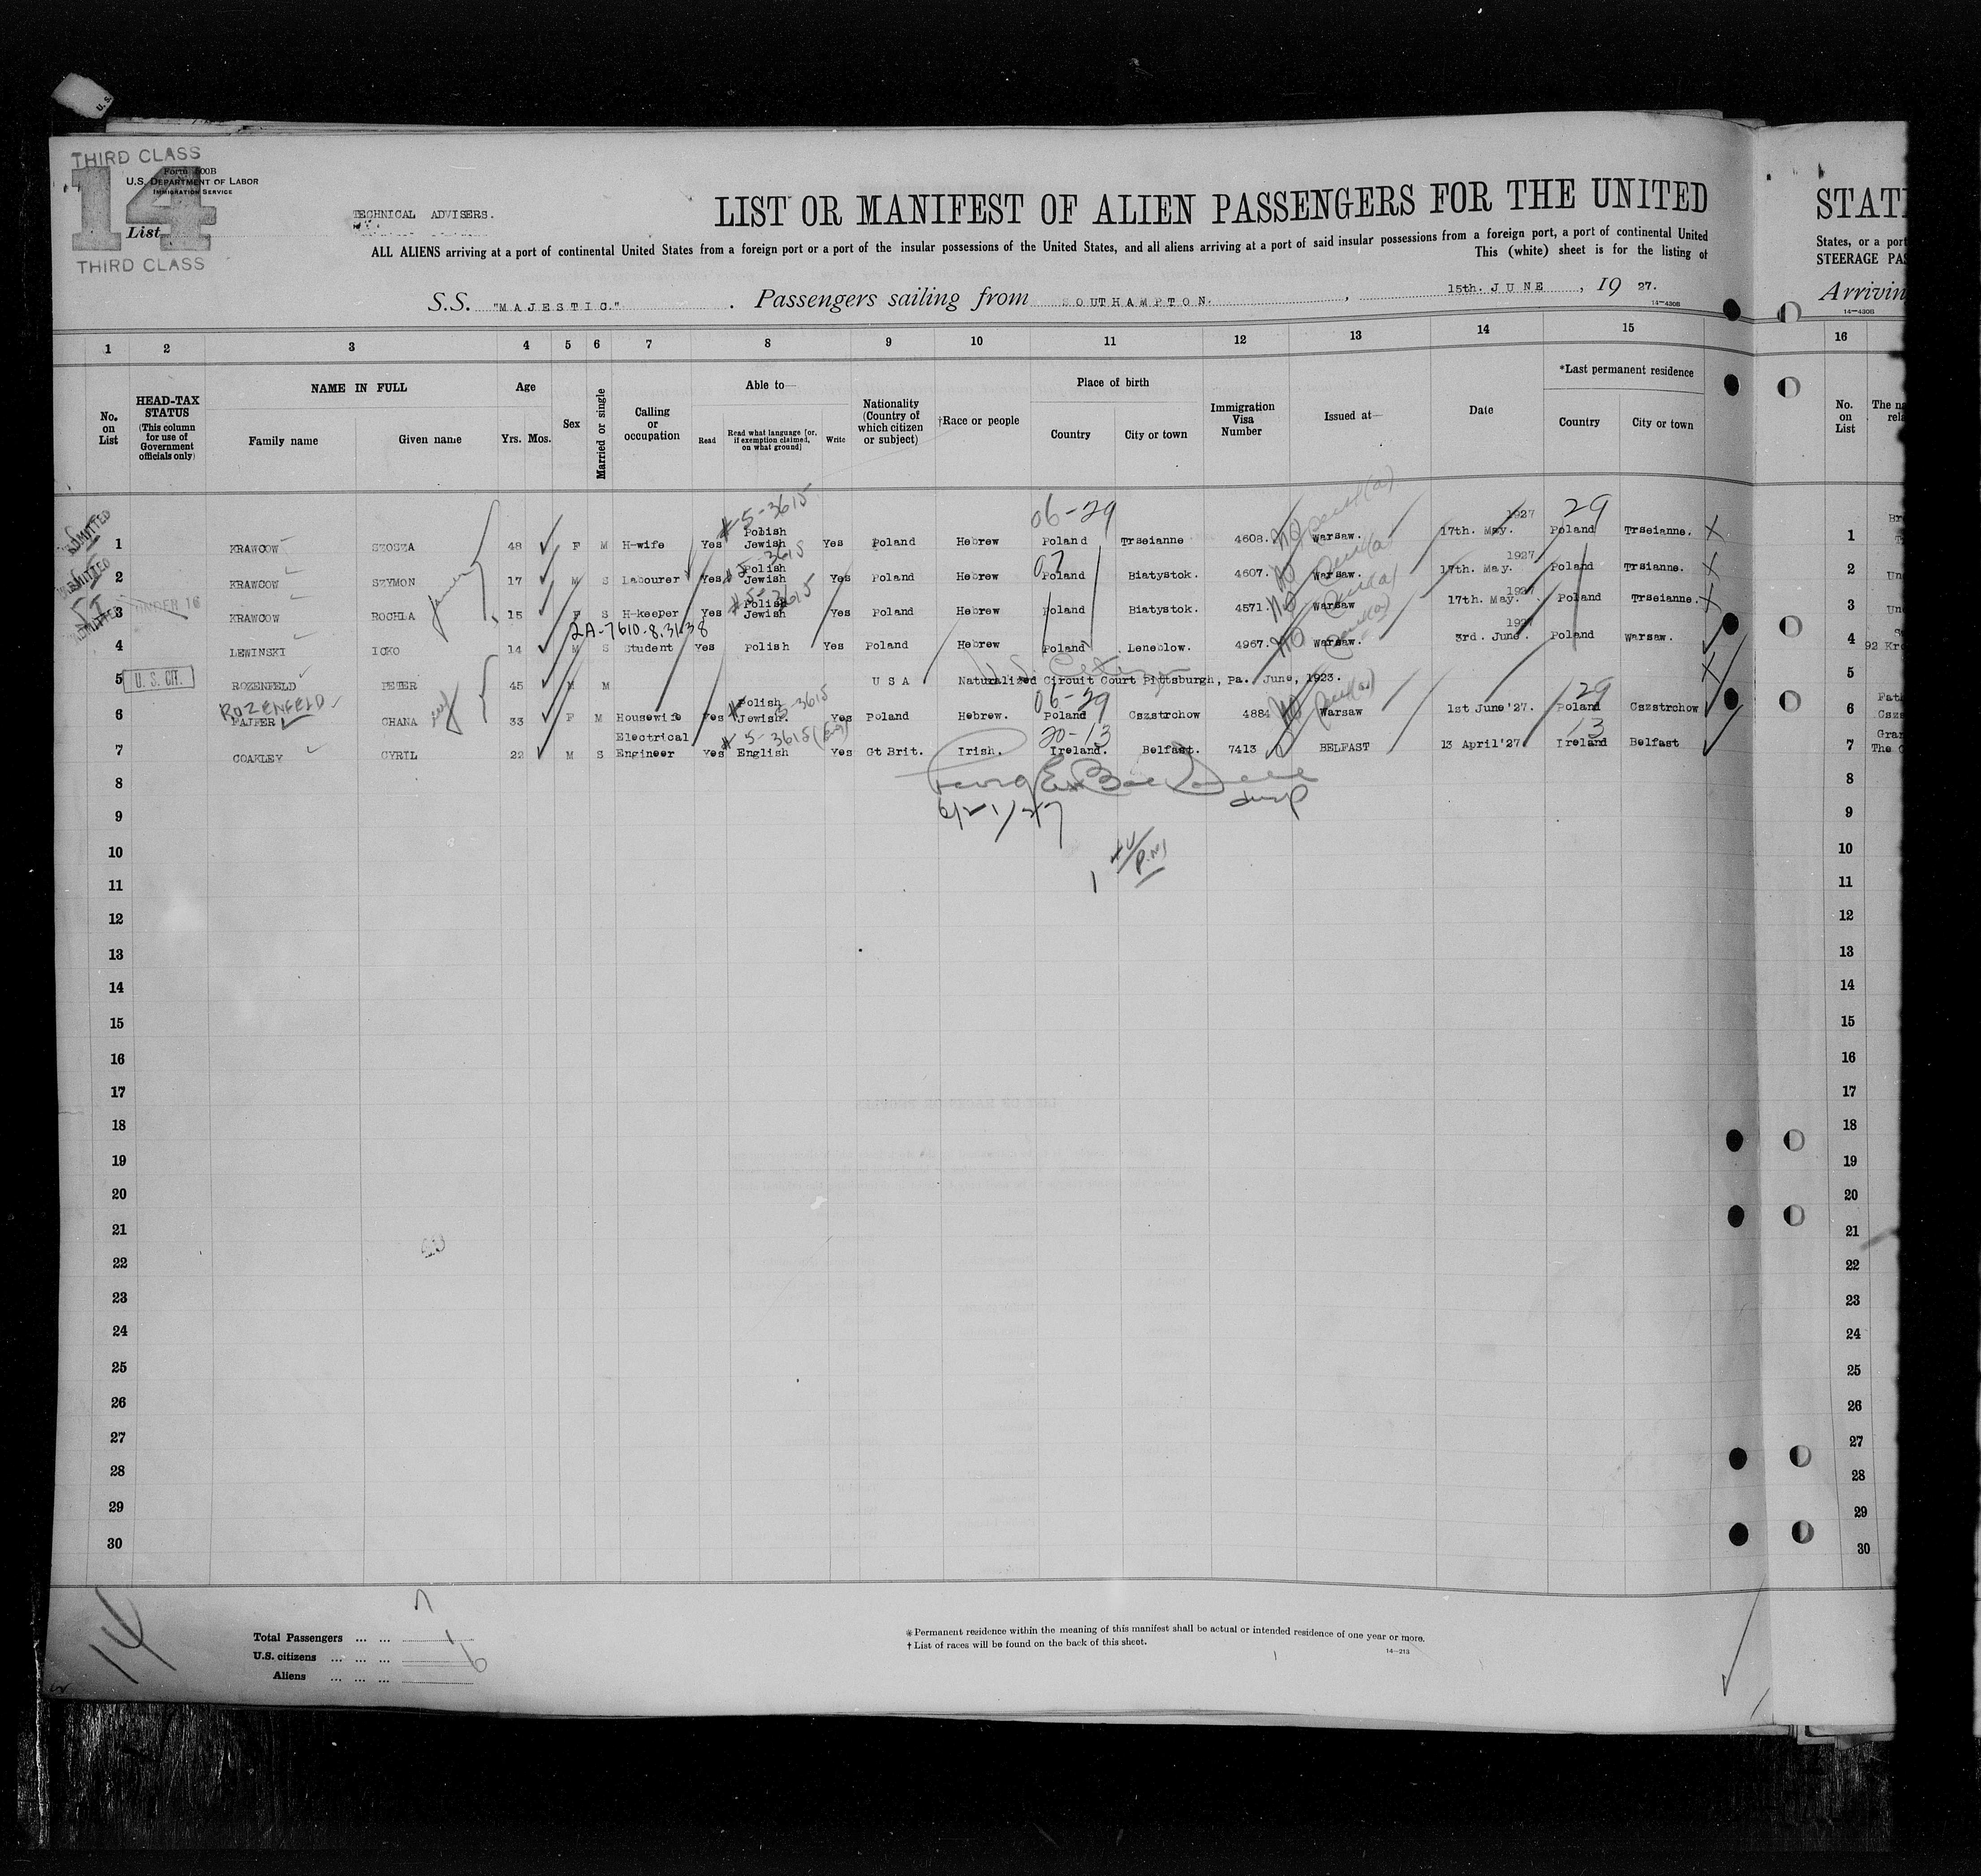 U.S.
THIRD CLASS
14
Form 500B
U.S. DEPARTMENT OF LABOR
IMMIGRATION SERVICE
List
THIRD CLASS
TECHNICAL ADVISERS.
LIST OR MANIFEST OF ALIEN PASSENGERS FOR THE UNITED
ALL ALIENS arriving at a port of continental United States from a foreign port or a port of the insular possessions of the United States, and all aliens arriving at a port of said insular possessions from a foreign port, a port of continental United
This (white) sheet is for the listing of
S.S. "MAJESTIC." Passengers sailing from SOUTHAMPTON. , 15th. JUNE , 19 27.
14—430B
STAT
States, or a port
STEERAGE PAS
Arrivin
14—430B
1 2 3 4 5 6 7 8 9 10 11 12 13 14 15 16
No. on List
HEAD-TAX STATUS (This column for use of Government officials only)
NAME IN FULL
Family name Given name
Age
Yrs. Mos.
Sex
Married or single
Calling or occupation
Able to—
Read
Read what language [or, if exemption claimed, on what ground]
Write
Nationality (Country of which citizen or subject)
†Race or people
Place of birth
Country City or town
Immigration Visa Number
Issued at—
Date
*Last permanent residence
Country City or town
No. on List
The na
rela
5-3615 06-29 29
ADMITTED 1 KRAWCOW SZOSZA 48 F M H-wife Yes Polish Jewish Yes Poland Hebrew Poland Trseianne 4608. Warsaw. 17th. May. 1927 Poland Trseianne. X 1
ADMITTED 2 KRAWCOW SZYMON 17 M S Labourer Yes Polish Jewish Yes Poland Hebrew Poland Biatystok. 4607. Warsaw. 17th. May. 1927 Poland Trsianne. X 2 Un
ADMITTED 3 UNDER 16 KRAWCOW ROCHLA 15 F S H-keeper Yes Polish Jewish Yes Poland Hebrew Poland Biatystok. 4571. Warsaw 17th. May. 1927 Poland Trseianne. 3 Un
2A-7610-8.31.38
4 LEWINSKI ICKO 14 M S Student Yes Polish Yes Poland Hebrew Poland Leneblow. 4967. Warsaw. 3rd. June. 1927 Poland Warsaw. 4 92 Kr
5 U.S. CIT. ROZENFELD PETER 45 M M U S A Naturalized Circuit Court Pittsburgh, Pa. June, 1923. X 5
ROZENFELD 5-3615 06-29 29
6 FAJFER CHANA 33 F M Housewife Yes Polish Jewish. Yes Poland Hebrew. Poland Cszstrchow 4884 Warsaw 1st June '27. Poland Cszstrchow 6
5-3615 (Eng) 20-13 13
7 COAKLEY CYRIL 22 M S Electrical Engineer Yes English Yes Gt Brit. Irish. Ireland. Belfast. 7413 BELFAST 13 April '27 Ireland Belfast 7 The
8 8
6/21/27
9 9
10 10
11 11
12 12
13 13
14 14
15 15
16 16
17 17
18 18
19 19
20 20
21 21
22 22
23 23
24 24
25 25
26 26
27 27
28 28
29 29
30 30
14
Total Passengers ... ... 7
U.S. citizens ... ... ... 1
Aliens ... ... ... 6
*Permanent residence within the meaning of this manifest shall be actual or intended residence of one year or more.
† List of races will be found on the back of this sheet.
14—213